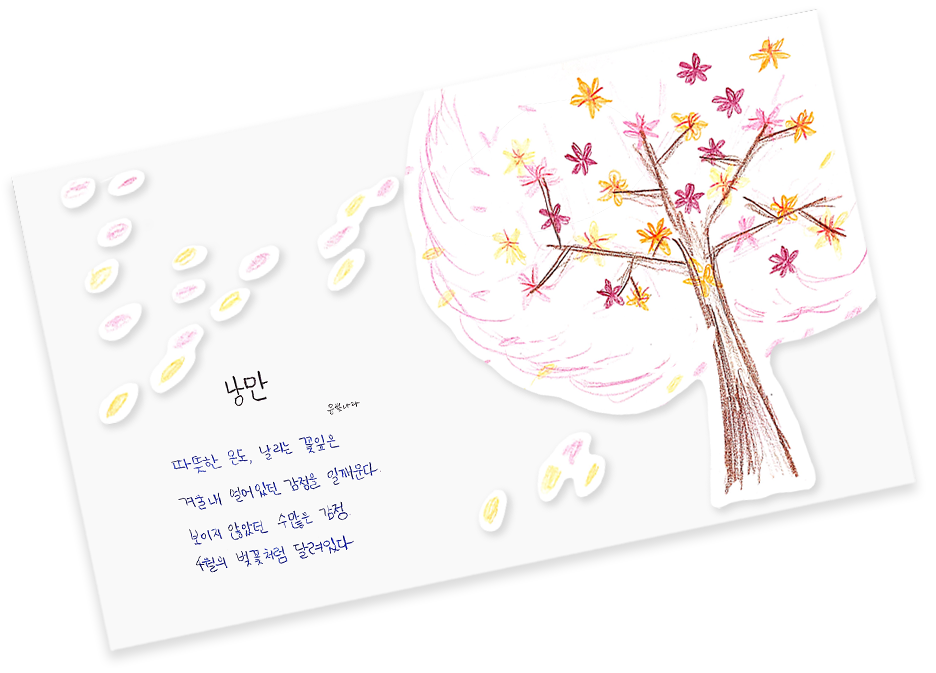 낭만
따뜻한 온도, 날리는 꽃잎은
겨울내 얼어있던 감정을 일깨운다.
보이지 않았던 수많은 감정.
4월의 벚꽃처럼 달려있다